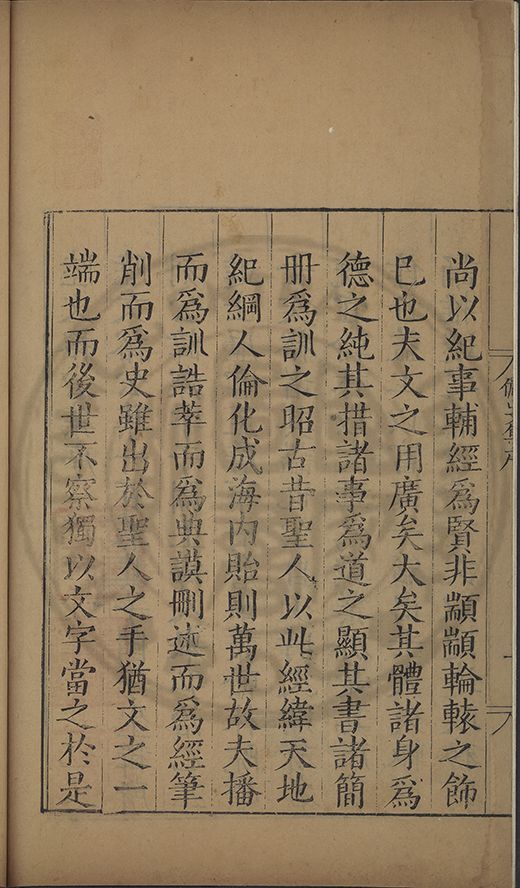 尚以紀事輔經爲賢非顓顓輪轅之飾
已也夫文之用廣矣大矣其體諸身爲
德之純其措諸事爲道之顯其書諸簡
册爲訓之昭古昔聖人以此經緯天地
紀綱人倫化成海内貽則萬世故夫播
而爲訓誥萃而爲典謨刪述而爲經筆
削而爲史雖出於聖人之手猶文之一
端也而後世不察獨以文字當之於是